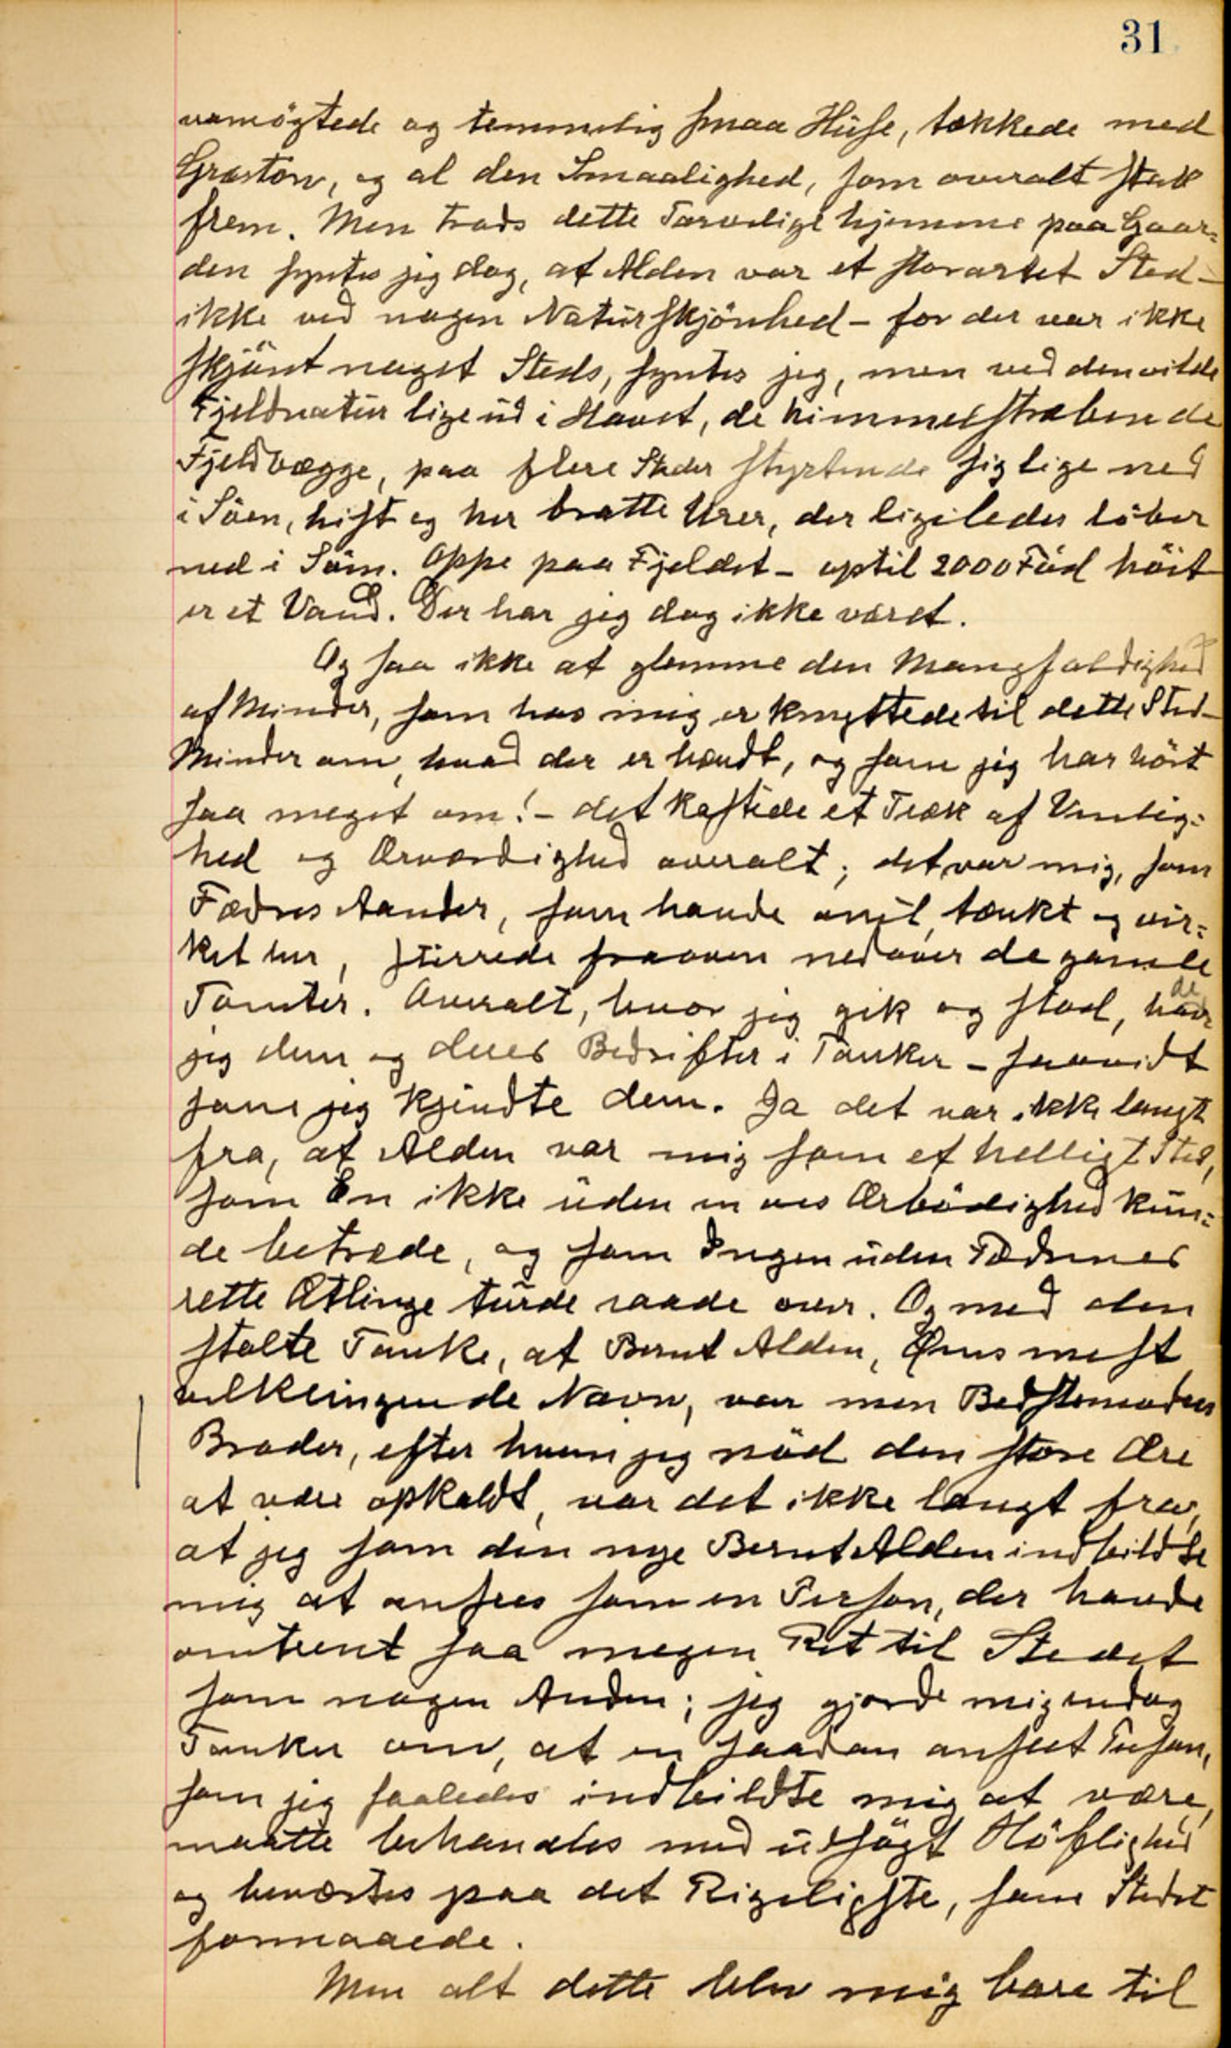 31
vamögtede og temmelig smaa Huse, tækkede med
Græstorv, og al den Smaalighed, som overalt stak
frem. Men trods dette Tarvelige hjemme paa Gaar=
den syntes jeg dog, at Alden var et storartet Sted -
ikke ved nogen Naturskjönhed - for der var ikke
skjönt noget Steds, syntes jeg, men ved den vilde
Fjeldnatur lige ud i Havet, de himmelstræbende
Fjeldvægge, paa flere Steder styrtende sig lige ned
i Söen, hist og her bratte Urer, der ligeledes löber
ned i Söen. Oppe paa Fjeldet - optil 2000 Fod höit
er et Vand. Der har jeg dog ikke været.
Og saa ikke at glemme den Mangfoldighed
af Minder, som hos mig er knyttede til dette Sted -
Minder om, hvad der er hændt, og som jeg har hört
saa meget om! - det kastede et Træk af Venlig=
hed og Ærværdighed overalt; det var mig, som
Fædres Aander, som havde tænkt og vir=
ket her, stirrede fraoven nedover de gamle
Tomter. Overalt, hvor jeg gik og stod, havde
jeg dem og deres Bedrifter i Tanker - saavidt
som jeg kjendte dem. Ja det var ikke langt
fra, at Alden var mig som et helligt Sted,
som En ikke uden en vis Ærbödighed kun=
de betræde, og som Ingen uden Fædrenes
rette Ætlinge turde raade over. Og med den
stolte Tanke, at Bernt Alden, Öens mest
velklingende Navn, var min Bedstemoders
Broder, efter hvem jeg nöd den store Ære
at være opkaldt, var det ikke langt fra,
at jeg som den nye Bernt Alden indbildte
mig at ansees som en Person, der havde
omtrent saa megen Ret til Stedet
som nogen Anden; jeg gjorde mig endog
Tanker om, at en saadan anseet Person,
som jeg saaledes indbildte mig at være,
maatte behandles med udsögt Höflighed
og beværtes paa det Rigeligste, som Stedet
formaaede.
Men alt dette blev mig bare til